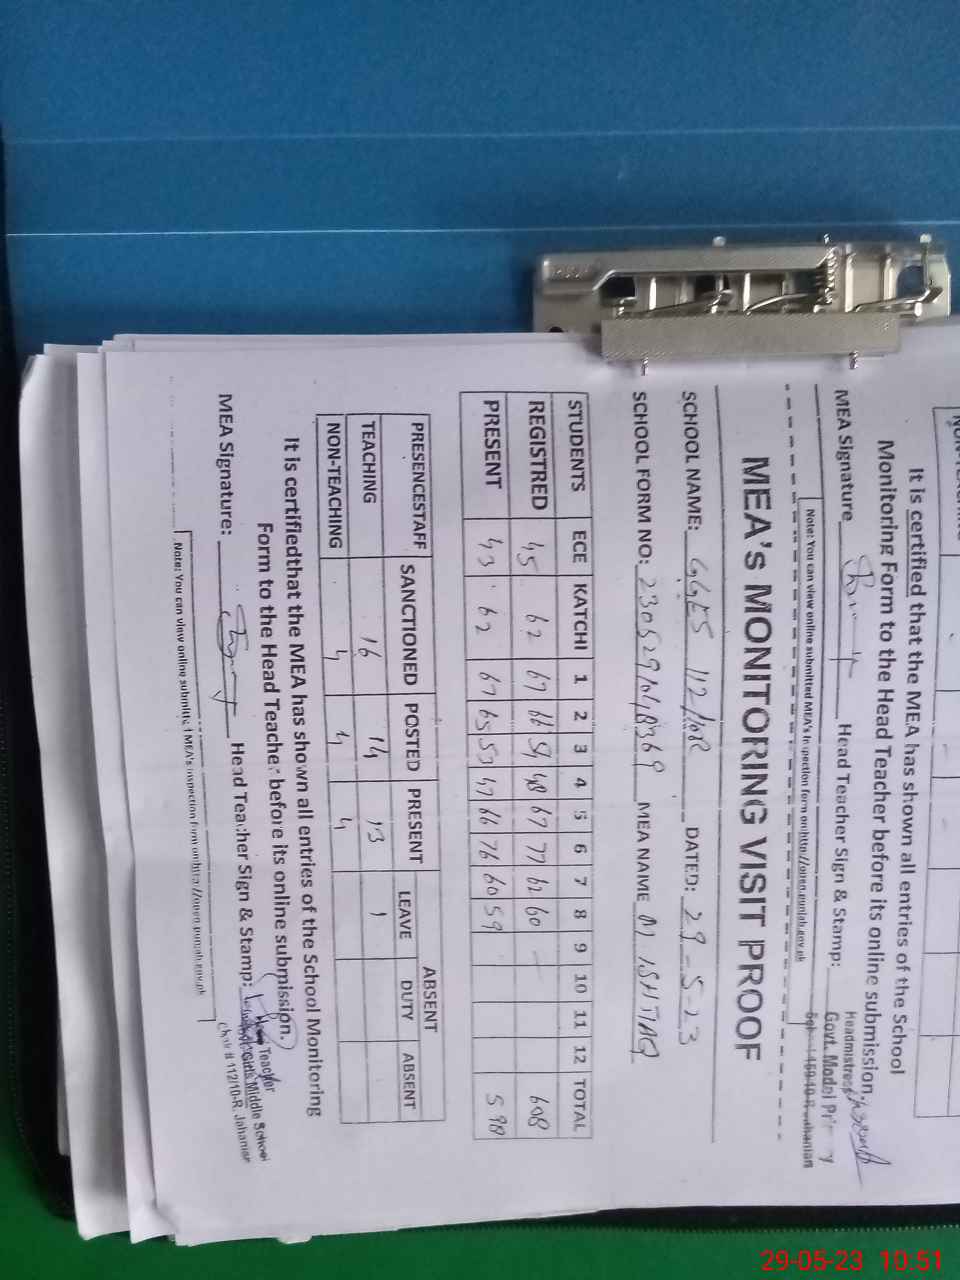 It is certified that the MEA has shown all entries of the School
Monitoring Form to the Head Teacher before its online submission.
MEA Signature Head Teacher Sign & Stamp:
Headmistress
Govt. Model
Note: You can view online submitted MEA's inspection form on:http://open.punjab.gov.pk
MEA's MONITORING VISIT PROOF
SCHOOL NAME: GGES 112/10R DATED: 29-5-23
SCHOOL FORM NO: MEA NAME M. ISHTIAQ
STUDENTS ECE KATCHI 1 2 3 4 5 6 7 8 9 10 11 12 TOTAL
REGISTRED 45 62 67 66 54 48 67 77 62 60 - 608
PRESENT 43 62 67 65 53 47 66 76 60 59 598
PRESENCESTAFF SANCTIONED POSTED PRESENT ABSENT
LEAVE DUTY ABSENT
TEACHING 16 14 13 1
NON-TEACHING 4 4 4
It is certifiedthat the MEA has shown all entries of the School Monitoring
Form to the Head Teacher before its online submission.
MEA Signature: Head Teacher Sign & Stamp:
Teacher
Girls Middle School
chak # 112/10-R. Jahanian
Note: You can view online submitted MEA's inspection form on:http://open.punjab.gov.pk
29-05-23 10:51